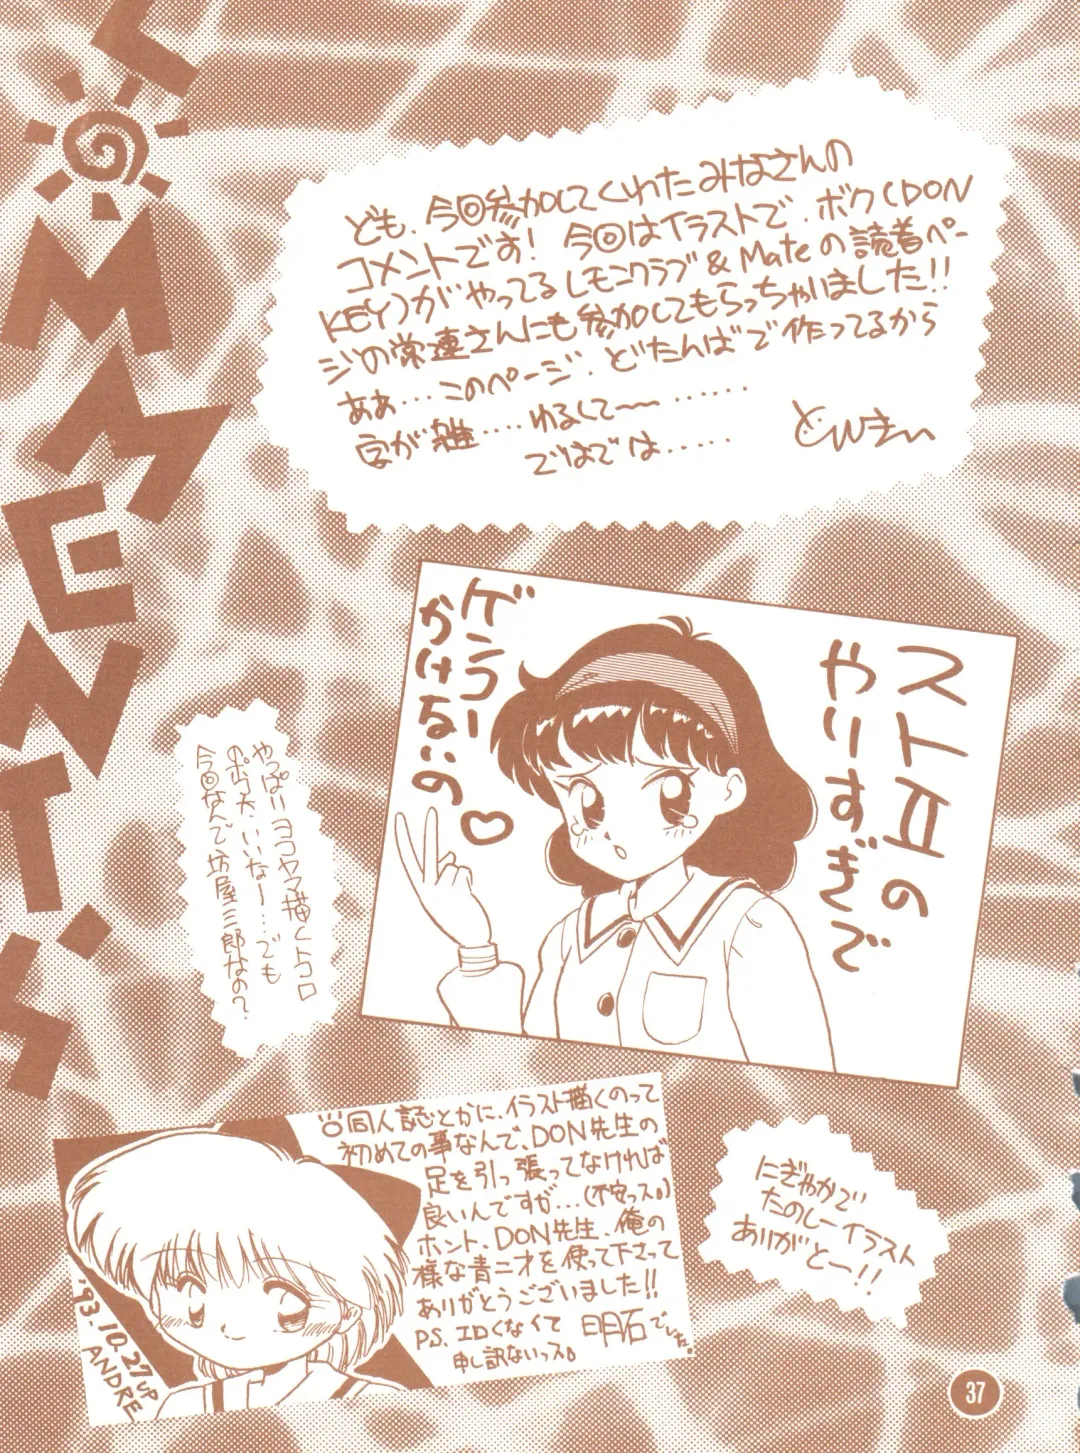 COMMENTS
ども、今回参加してくれたみなさんの
コメントです! 今回はイラストで、ボク(DON
KEY)がやってるレモンクラブ & Mateの読者ペー
ジの常連さんにも参加してもらっちゃいました!!
ああ…このページ、どたんばで作ってるから
字が雑‥‥ゆるくて〜〜‥‥‥
ではでは‥‥‥
どんきぃ
ストⅡの
やりすぎで
ゲンコー
かけないの
♡
やっぱりヨコヤマ描くトコロ
の出太いいなー…でも
今回なんで坊屋三郎なの?
同人誌とかに、イラスト描くのって
初めての事なんで、DON先生の
足を引っ張ってなければ
良いんですが…(不安っス。)
ホント、DON先生、俺の
様な青二才を使って下さって
ありがとうございました!!
P.S. エロくなくて
申し訳ないっス。
明石でした。
'93.10.27 UP
ANDRE
にぎやかで
たのしーイラスト
ありがとー!!
37